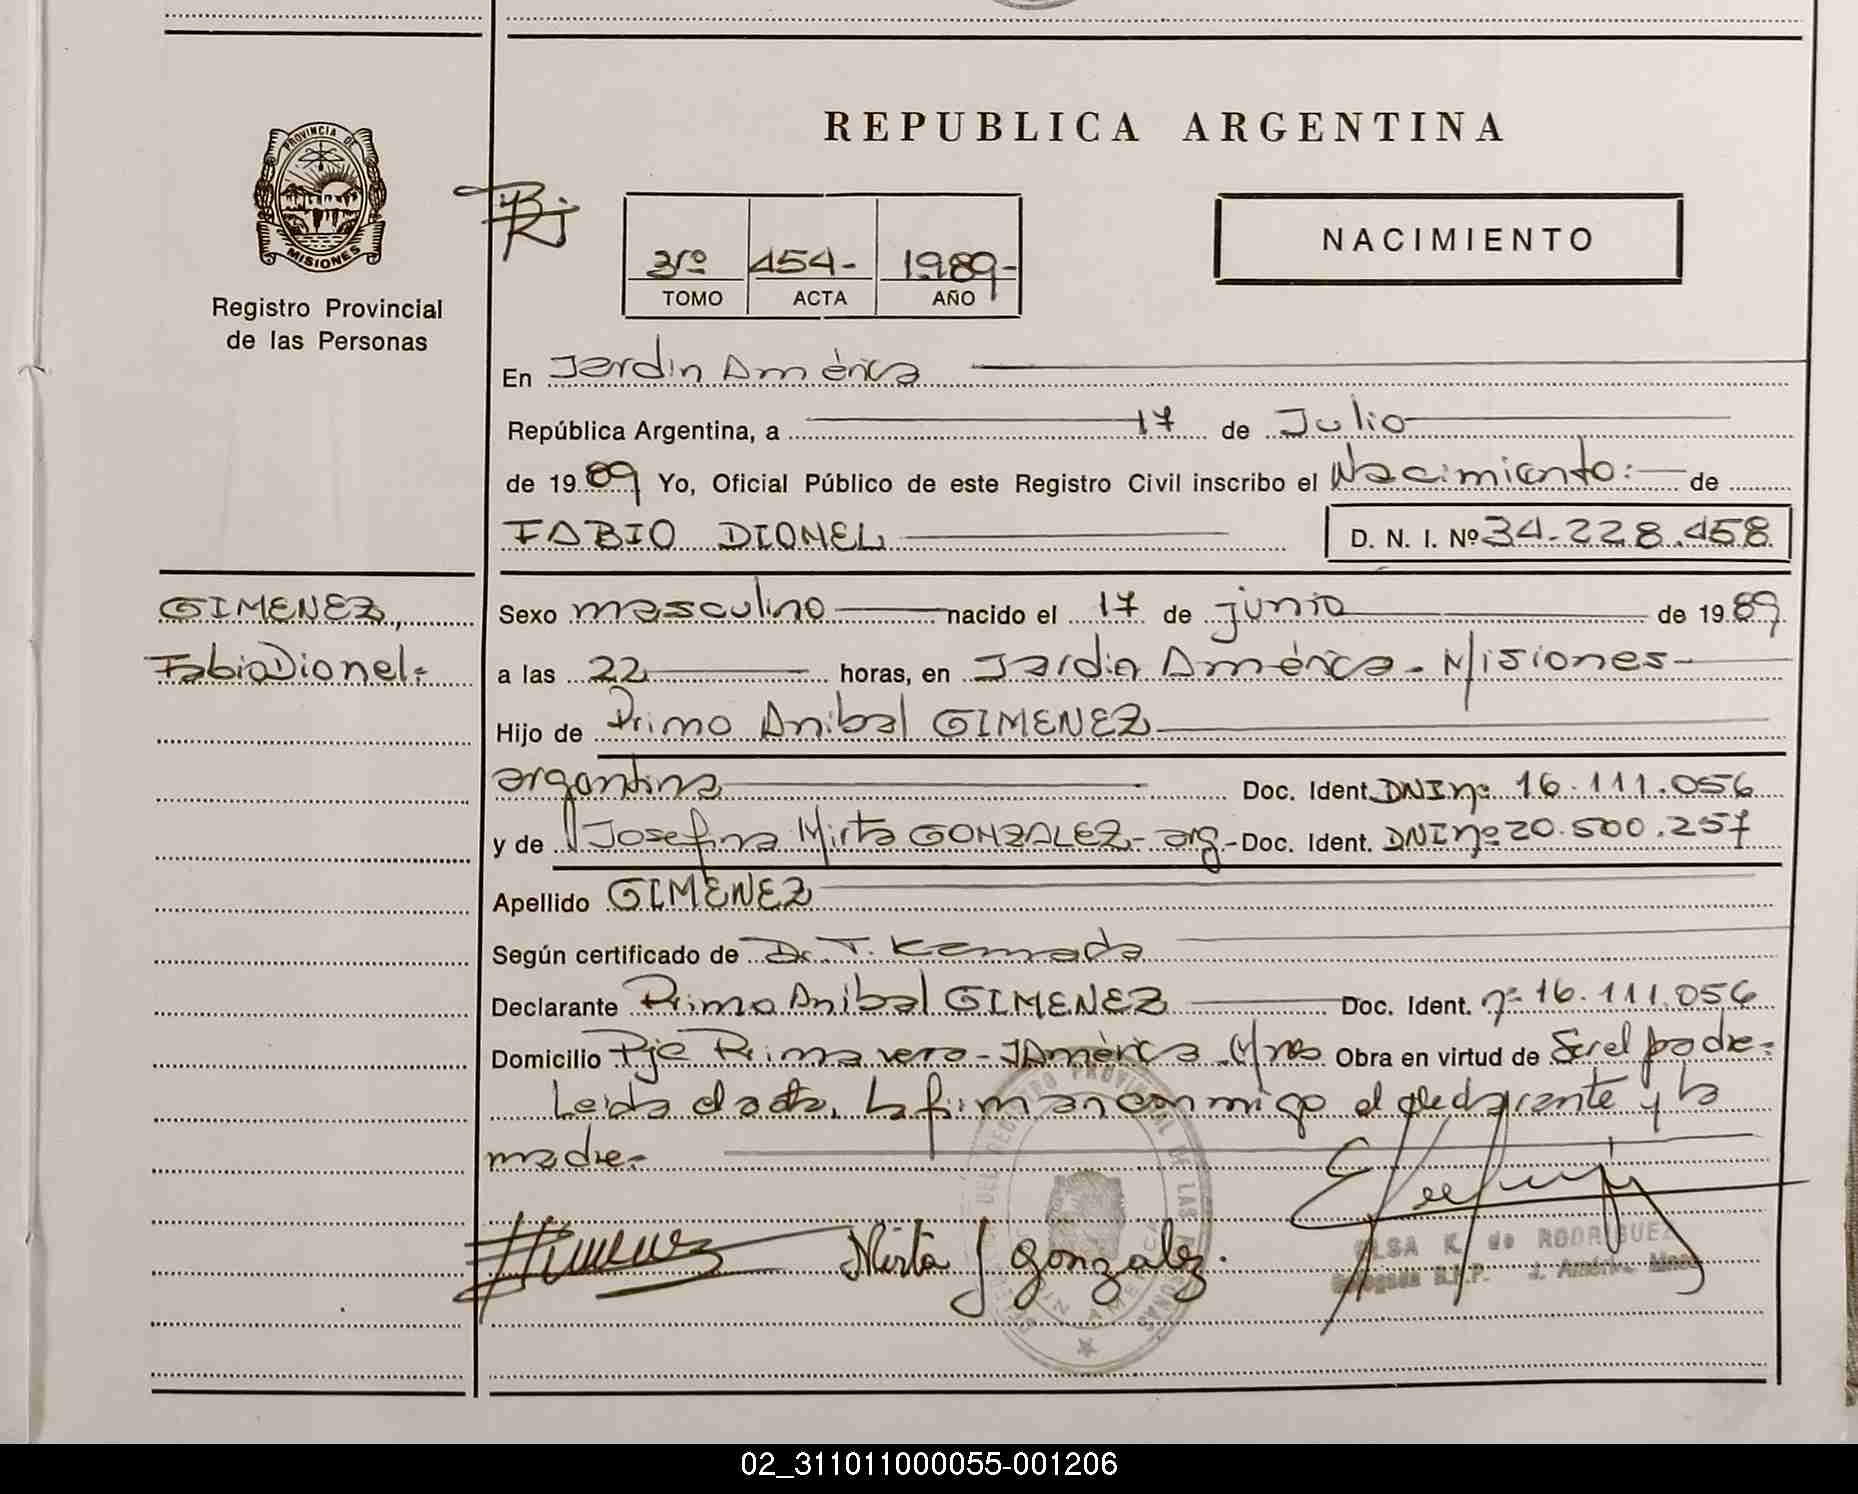 REPUBLICA ARGENTINA
PROVINCIA DE
MISIONES
Registro Provincial
de las Personas
3ro 454- 1989-
TOMO ACTA AÑO
NACIMIENTO
En Jardin América
República Argentina, a 17 de Julio
de 1989 Yo, Oficial Público de este Registro Civil inscribo el Nacimiento: de
FABIO DIONEL D. N. I. Nº 34-228.458
GIMENEZ,
Fabio Dionel=
Sexo masculino nacido el 17 de junio de 1989
a las 22 horas, en Jardin América - Misiones
Hijo de Primo Anibal GIMENEZ
argentina Doc. Ident. DNI nº 16.111.056
y de Josefina Mirta GONZALEZ - arg - Doc. Ident. DNI nº 20.500.257
Apellido GIMENEZ
Según certificado de Dr. T. Kamada
Declarante Primo Anibal GIMENEZ Doc. Ident. nº 16.111.056
Domicilio Pje Primavera - J América - Mnes Obra en virtud de Ser el padre=
Leida el acta, la firman conmigo el declarante y la
madre=
Gimenez Mirta J gonzalez.
ELSA K. de RODRIGUEZ
Delegada R.P.P. J. América Mnes
REGISTRO PROVINCIAL DE LAS PERSONAS
02_311011000055-001206